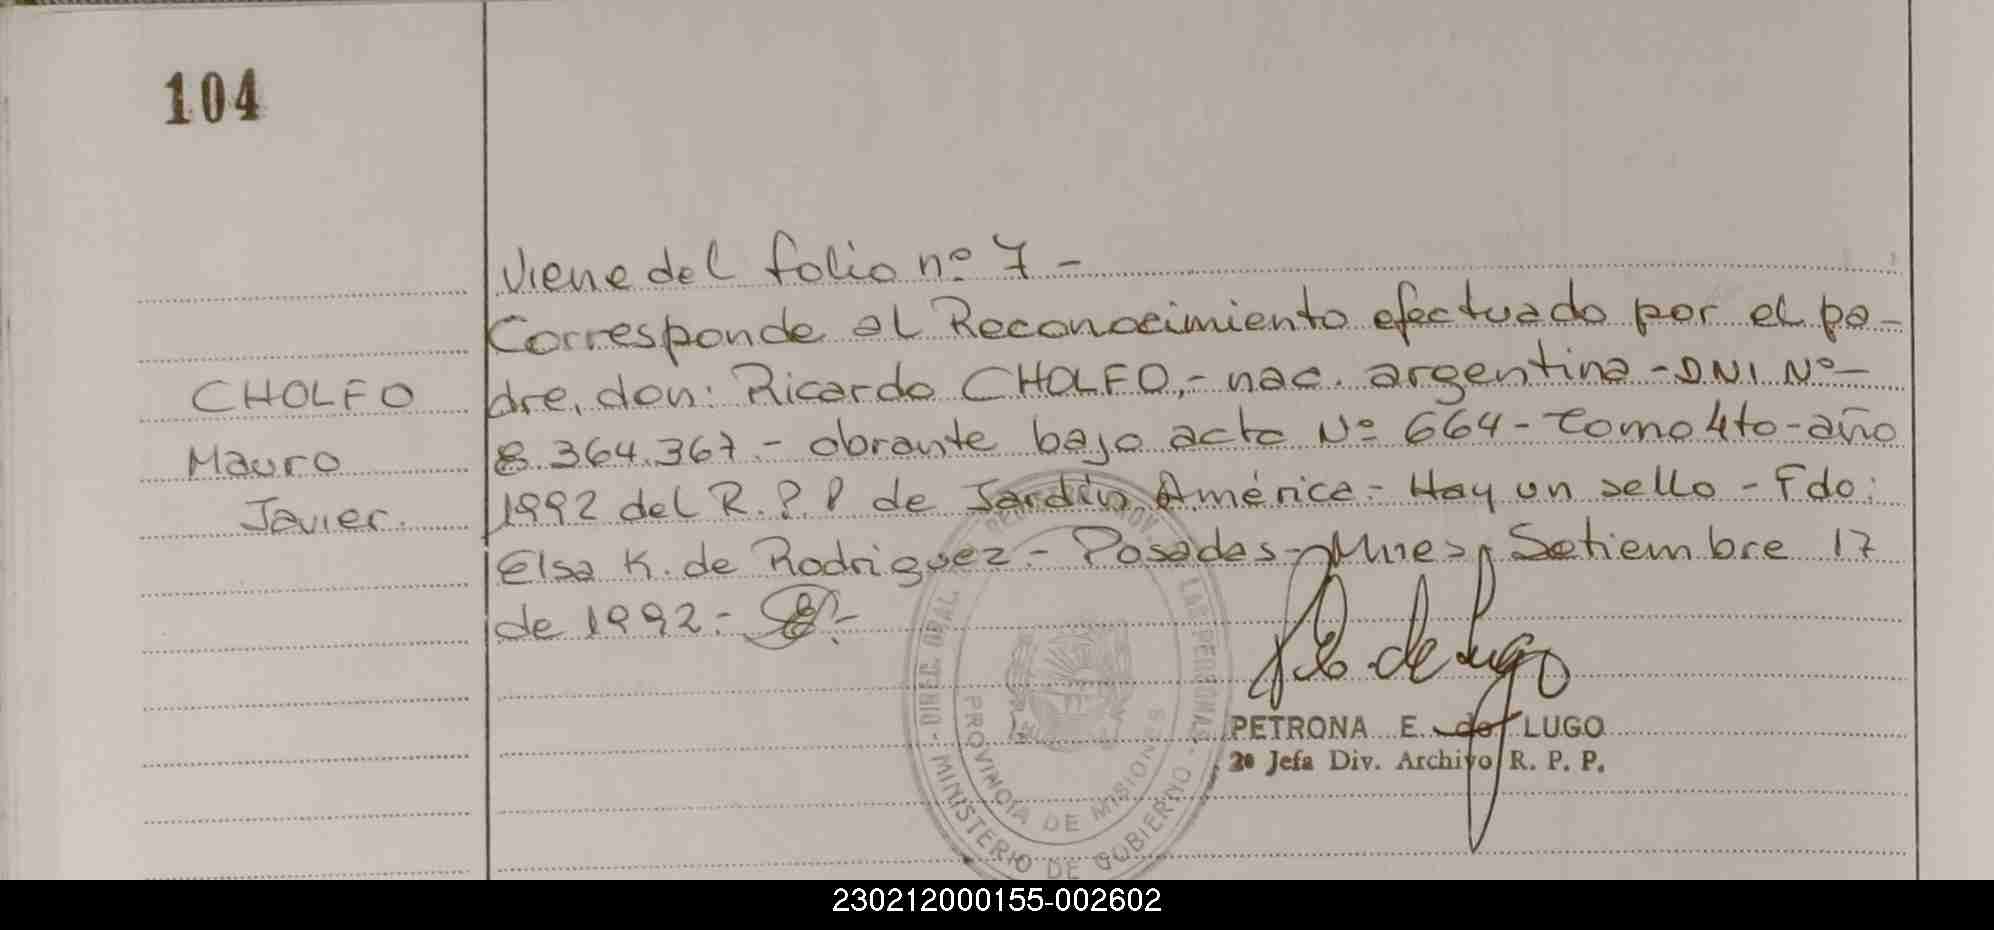 104
Viene del folio nº 7 -
Corresponde al Reconocimiento efectuado por el pa-
dre, don: Ricardo CHOLFO,- nac. argentina - DNI Nº-
CHOLFO
8.364.367.- obrante bajo acta Nº 664 - Tomo 4to - año
Mauro
1992 del R.P.P de Jardín América.- Hay un sello - Fdo:
Javier.
Elsa K. de Rodriguez.- Posadas, Mnes, Setiembre 17
de 1992.-
E. de Lugo
PETRONA E. de LUGO
2º Jefa Div. Archivo R. P. P.
DIREC. GRAL.
PROVINCIA DE MISIONES
MINISTERIO DE GOBIERNO
230212000155-002602